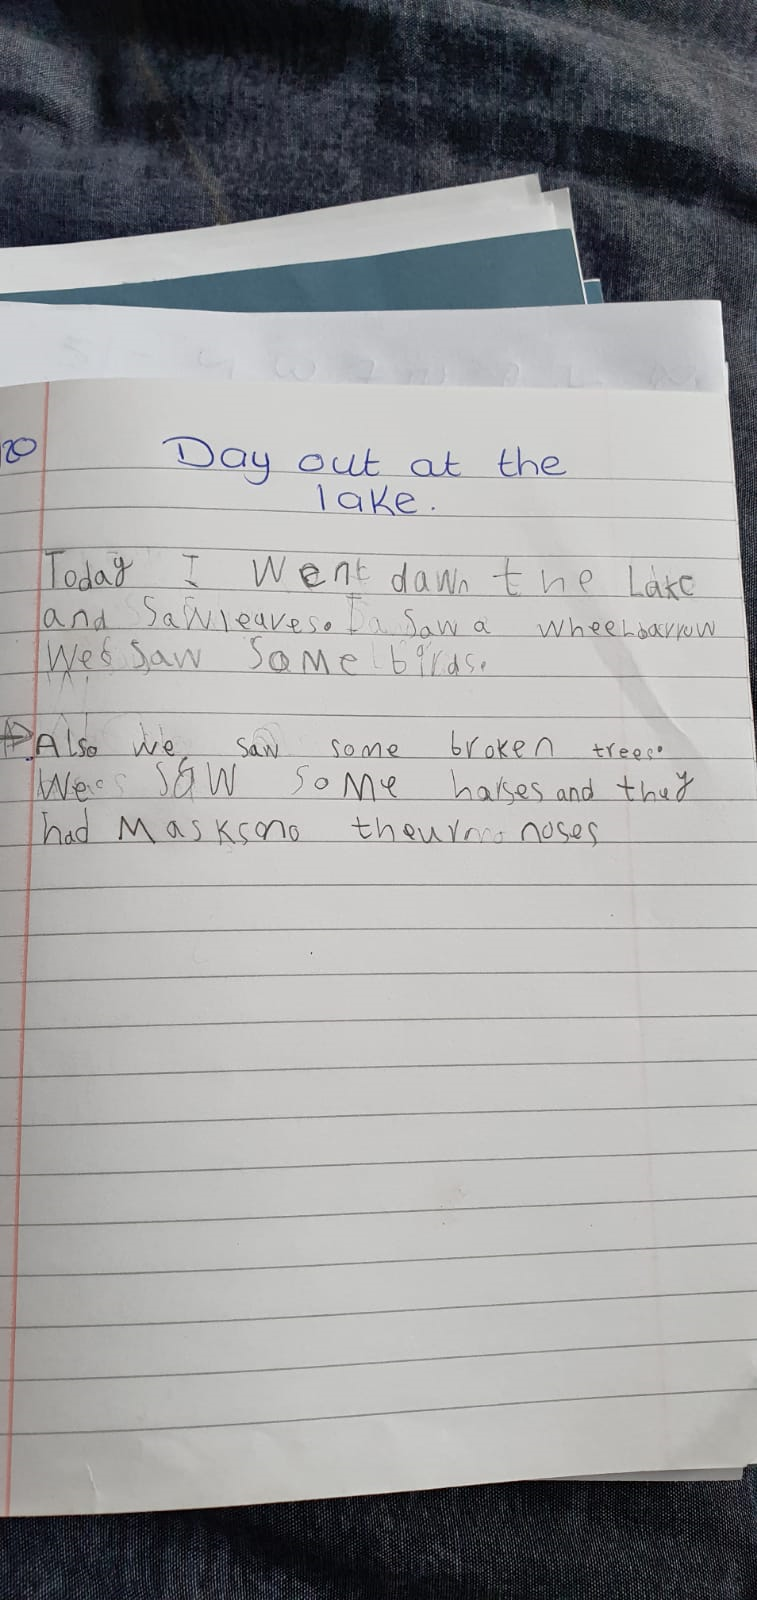 20
Day out at the
lake.
Today I went dawn the Lake
and Saw leaves. I Saw a wheelbarrow
We Saw Same birds.
Also we saw some broken trees.
We saw some harses and they
had Masks on noses